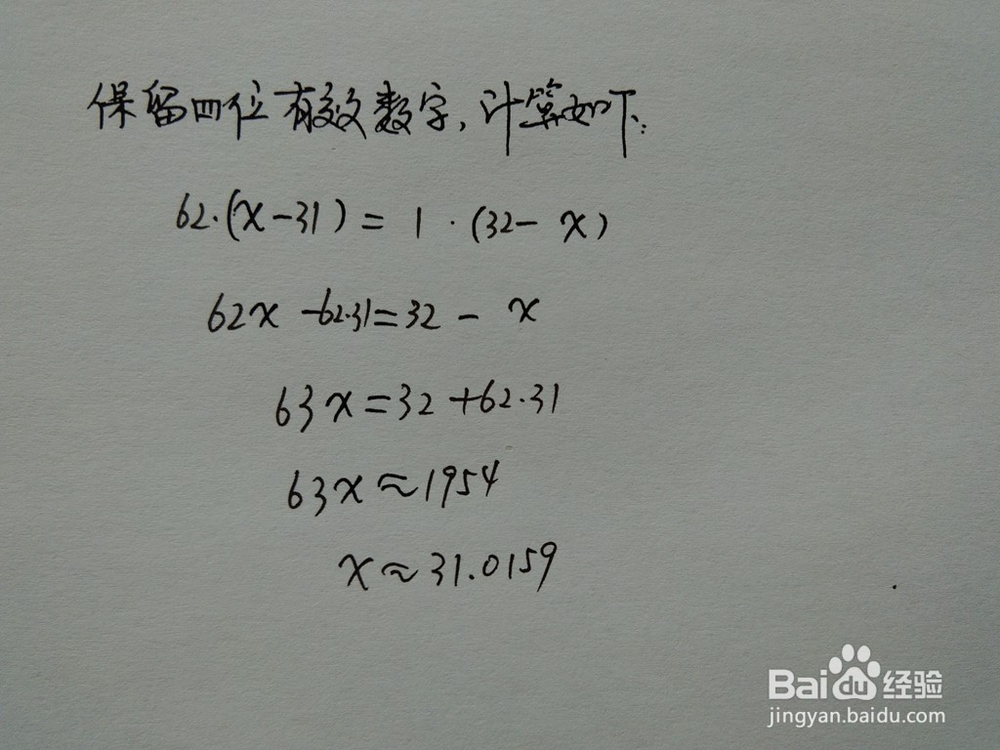 保留四位有效数字,计算如下:
62·(x-31)=1·(32-x)
62x-62·31=32-x
63x=32+62·31
63x≈1954
x≈31.0159
Baidu经验
jingyan.baidu.com